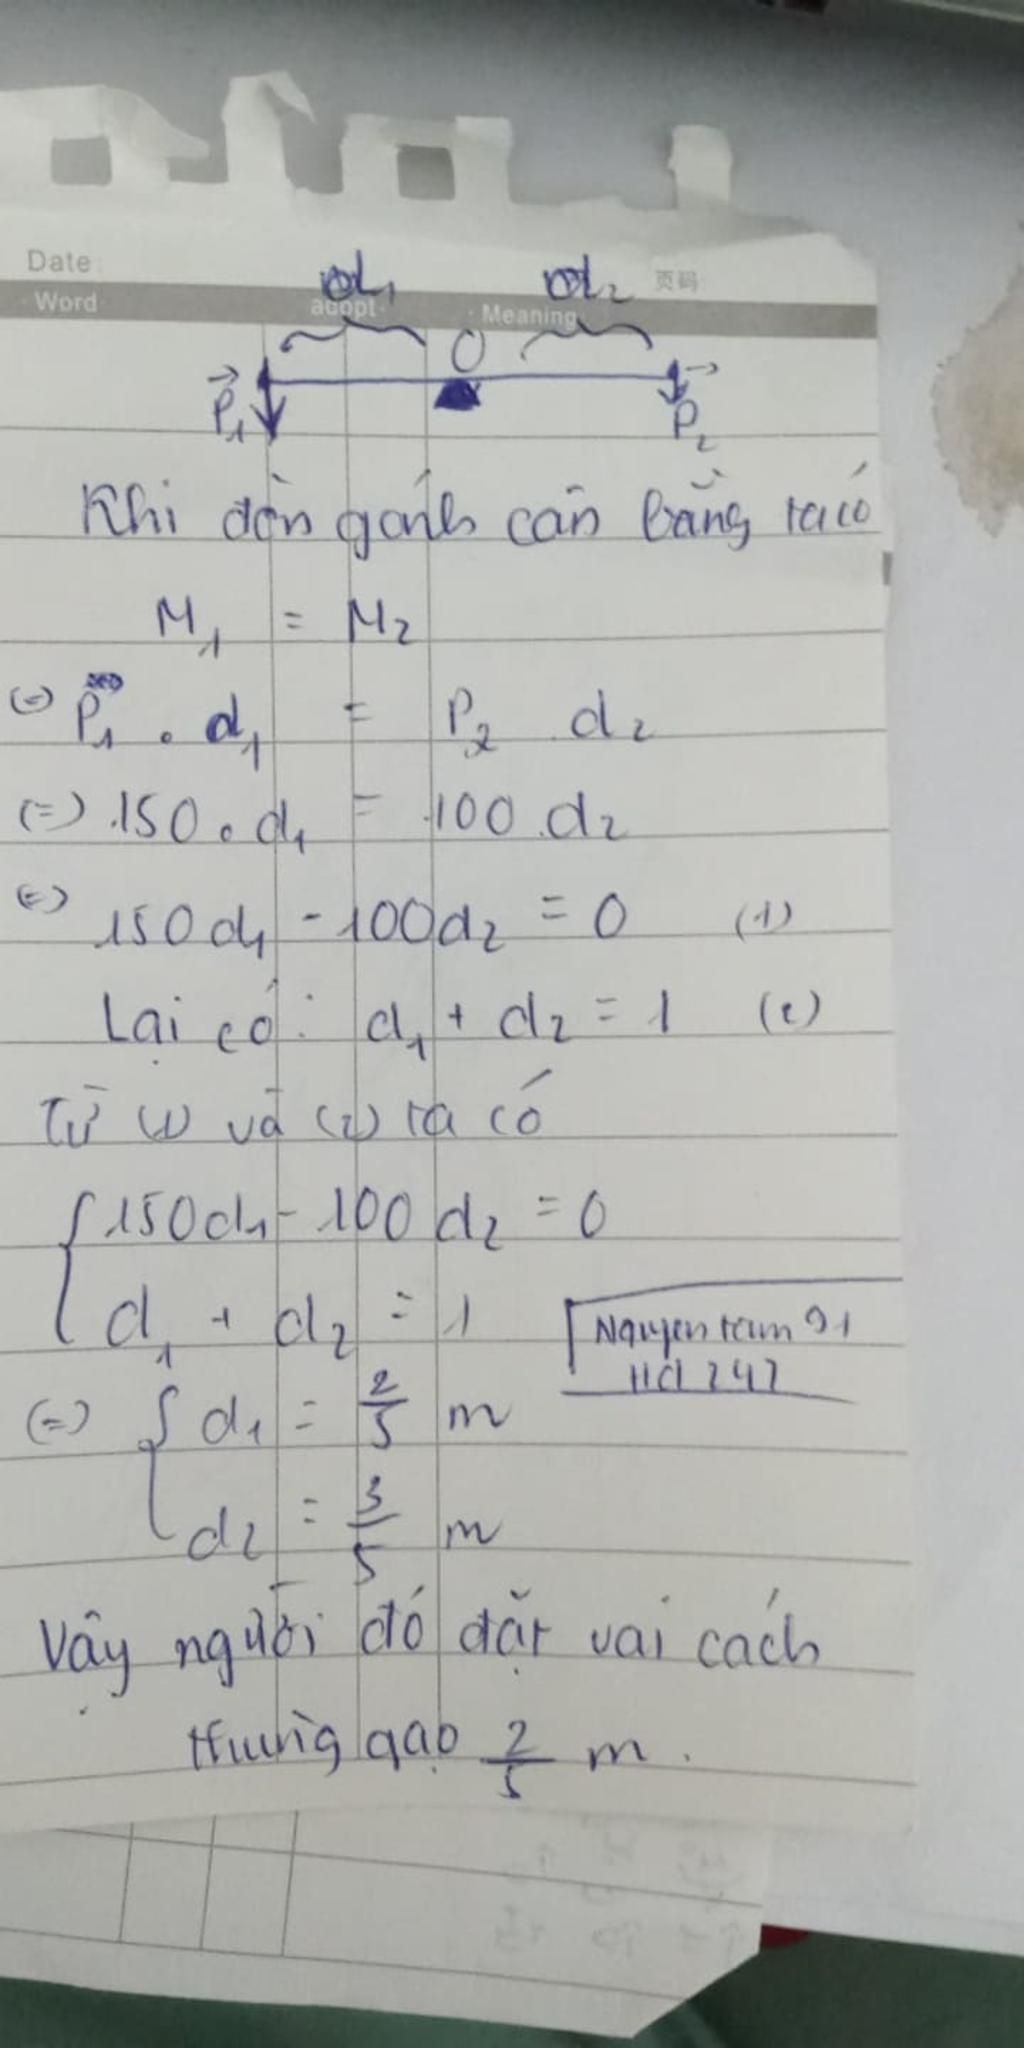 Date:
页码:
Word
adopt
Meaning
d₁
d₂
O
P₁
P₂
Khi đòn gánh cân bằng ta có
M₁ = M₂
(=) P₁ . d₁ = P₂ . d₂
(=) 150 . d₁ = 100 . d₂
(=) 150d₁ - 100d₂ = 0 (1)
Lại có : d₁ + d₂ = 1 (2)
Từ (1) và (2) ta có
150d₁ - 100d₂ = 0
d₁ + d₂ = 1
Nguyen tam 91
Hd 247
(=) d₁ = 2/5 m
d₂ = 3/5 m
Vậy người đó đặt vai cách
thùng gạo 2/5 m .